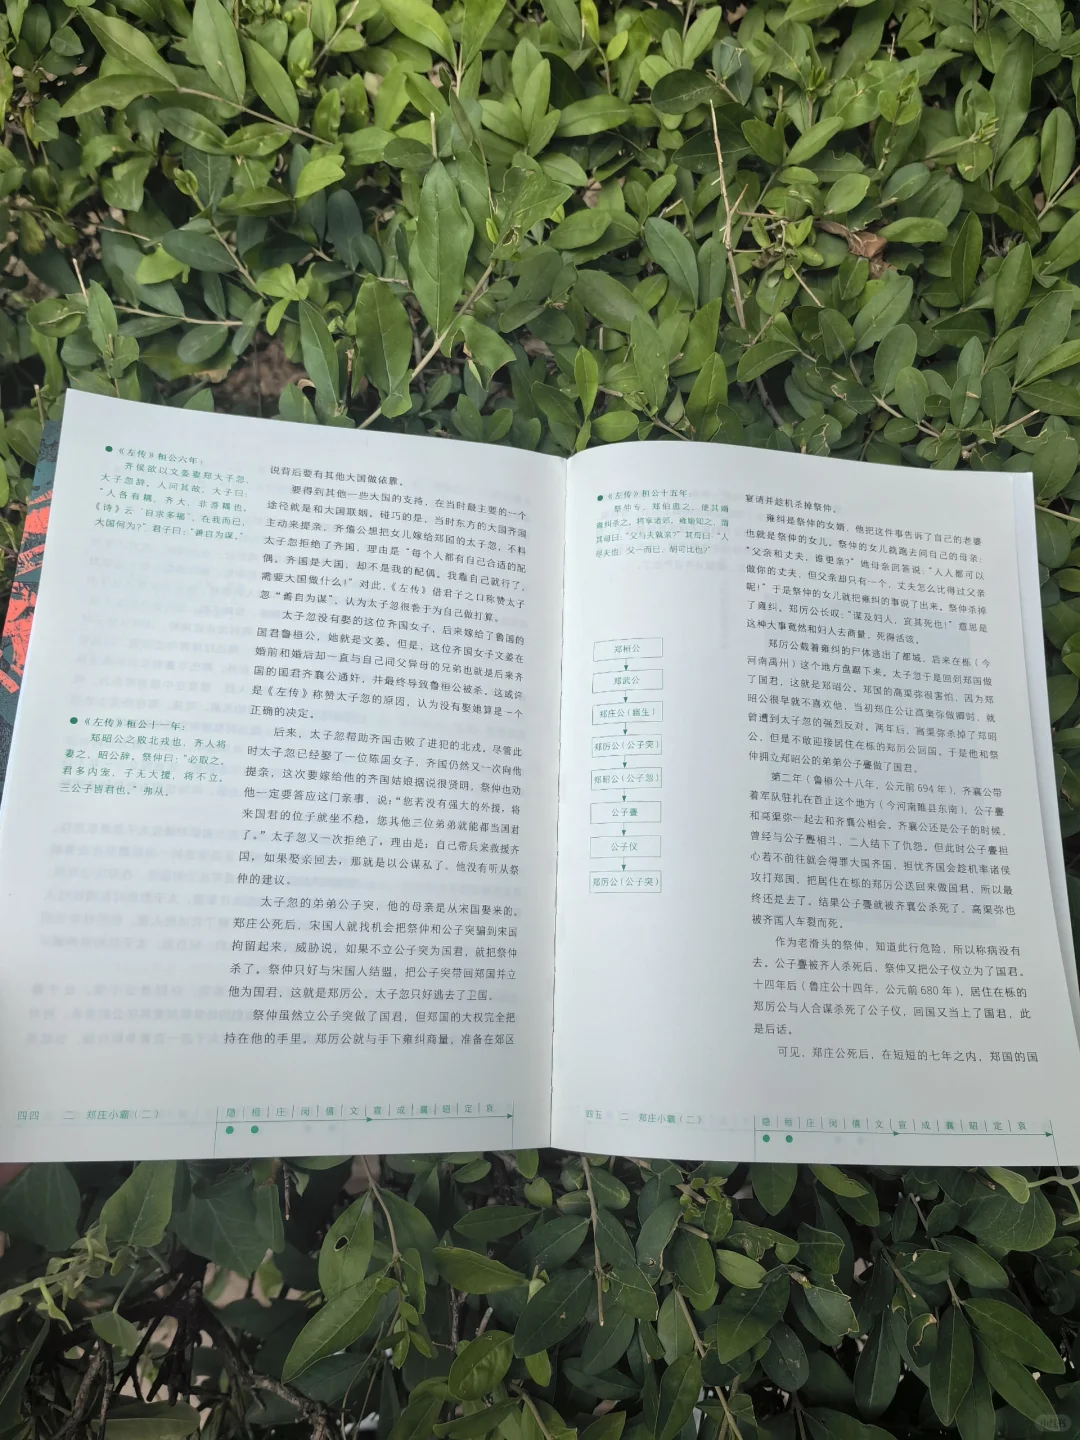 ●《左传》桓公六年：
齐侯欲以文姜妻郑大子忽。
大子忽辞。人问其故。大子曰：
“人各有耦，齐大，非吾耦也。
《诗》云‘自求多福’，在我而已，
大国何为？”君子曰：“善自为谋。”
●《左传》桓公十一年：
郑昭公之败北戎也，齐人将
妻之，昭公辞。祭仲曰：“必取之。
君多内宠，子无大援，将不立。
三公子皆君也。”弗从。
说背后要有其他大国做依靠。
要得到其他一些大国的支持，在当时最主要的一个
途径就是和大国联姻。碰巧的是，当时东方的大国齐国
主动来提亲。齐僖公想把女儿嫁给郑国的太子忽，不料
太子忽拒绝了齐国，理由是“每个人都有自己合适的配
偶。齐国是大国，却不是我的配偶。我靠自己就行了，
需要大国做什么！”对此，《左传》借君子之口称赞太子
忽“善自为谋”，认为太子忽很善于为自己做打算。
太子忽没有娶的这位齐国女子，后来嫁给了鲁国的
国君鲁桓公，她就是文姜。但是，这位齐国女子文姜在
婚前和婚后却一直与自己同父异母的兄弟也就是后来齐
国的国君齐襄公通奸，并最终导致鲁桓公被杀。这或许
是《左传》称赞太子忽的原因，认为没有娶她算是一个
正确的决定。
后来，太子忽帮助齐国击败了进犯的北戎。尽管此
时太子忽已经娶了一位陈国女子，齐国仍然又一次向他
提亲，这次要嫁给他的齐国姑娘据说很贤明，祭仲也劝
他一定要答应这门亲事，说：“您若没有强大的外援，将
来国君的位子就坐不稳，您其他三位弟弟就能都当国君
了。”太子忽又一次拒绝了，理由是：自己带兵来救援齐
国，如果娶亲回去，那就是以公谋私了。他没有听从祭
仲的建议。
太子忽的弟弟公子突，他的母亲是从宋国娶来的。
郑庄公死后，宋国人就找机会把祭仲和公子突骗到宋国
拘留起来，威胁说，如果不立公子突为国君，就把祭仲
杀了。祭仲只好与宋国人结盟，把公子突带回郑国并立
他为国君，这就是郑厉公。太子忽只好逃去了卫国。
祭仲虽然立公子突做了国君，但郑国的大权完全把
持在他的手里。郑厉公就与手下雍纠商量，准备在郊区
四四 二 郑庄小霸（二）
隐 桓 庄 闵 僖 文 宣 成 襄 昭 定 哀
●《左传》桓公十五年：
祭仲专，郑伯患之，使其婿
雍纠杀之。将享诸郊。雍姬知之，谓
其母曰：“父与夫孰亲？”其母曰：“人
尽夫也，父一而已，胡可比也？”
郑桓公
郑武公
郑庄公（寤生）
郑厉公（公子突）
郑昭公（公子忽）
公子亹
公子仪
郑厉公（公子突）
宴请并趁机杀掉祭仲。
雍纠是祭仲的女婿，他把这件事告诉了自己的老婆
也就是祭仲的女儿。祭仲的女儿就跑去问自己的母亲：
“父亲和丈夫，谁更亲？”她母亲回答说：“人人都可以
做你的丈夫，但父亲却只有一个，丈夫怎么比得过父亲
呢！”于是祭仲的女儿就把雍纠的事说了出来。祭仲杀掉
了雍纠。郑厉公长叹：“谋及妇人，宜其死也！”意思是
这种大事竟然和妇人去商量，死得活该。
郑厉公载着雍纠的尸体逃出了都城，后来在栎（今
河南禹州）这个地方盘踞下来。太子忽于是回到郑国做
了国君，这就是郑昭公。郑国的高渠弥很害怕，因为郑
昭公很早就不喜欢他，当初郑庄公让高渠弥做卿时，就
曾遭到太子忽的强烈反对。两年后，高渠弥杀掉了郑昭
公，但是不敢迎接居住在栎的郑厉公回国，于是他和祭
仲拥立郑昭公的弟弟公子亹做了国君。
第二年（鲁桓公十八年，公元前 694 年），齐襄公带
着军队驻扎在首止这个地方（今河南睢县东南），公子亹
和高渠弥一起去和齐襄公相会。齐襄公还是公子的时候，
曾经与公子亹相斗，二人结下了仇怨。但此时公子亹担
心若不前往就会得罪大国齐国，担忧齐国会趁机率诸侯
攻打郑国，把居住在栎的郑厉公送回来做国君，所以最
终还是去了。结果公子亹就被齐襄公杀死了，高渠弥也
被齐国人车裂而死。
作为老滑头的祭仲，知道此行危险，所以称病没有
去。公子亹被齐人杀死后，祭仲又把公子仪立为了国君。
十四年后（鲁庄公十四年，公元前 680 年），居住在栎的
郑厉公与人合谋杀死了公子仪，回国又当上了国君，此
是后话。
可见，郑庄公死后，在短短的七年之内，郑国的国
四五 二 郑庄小霸（二）
隐 桓 庄 闵 僖 文 宣 成 襄 昭 定 哀